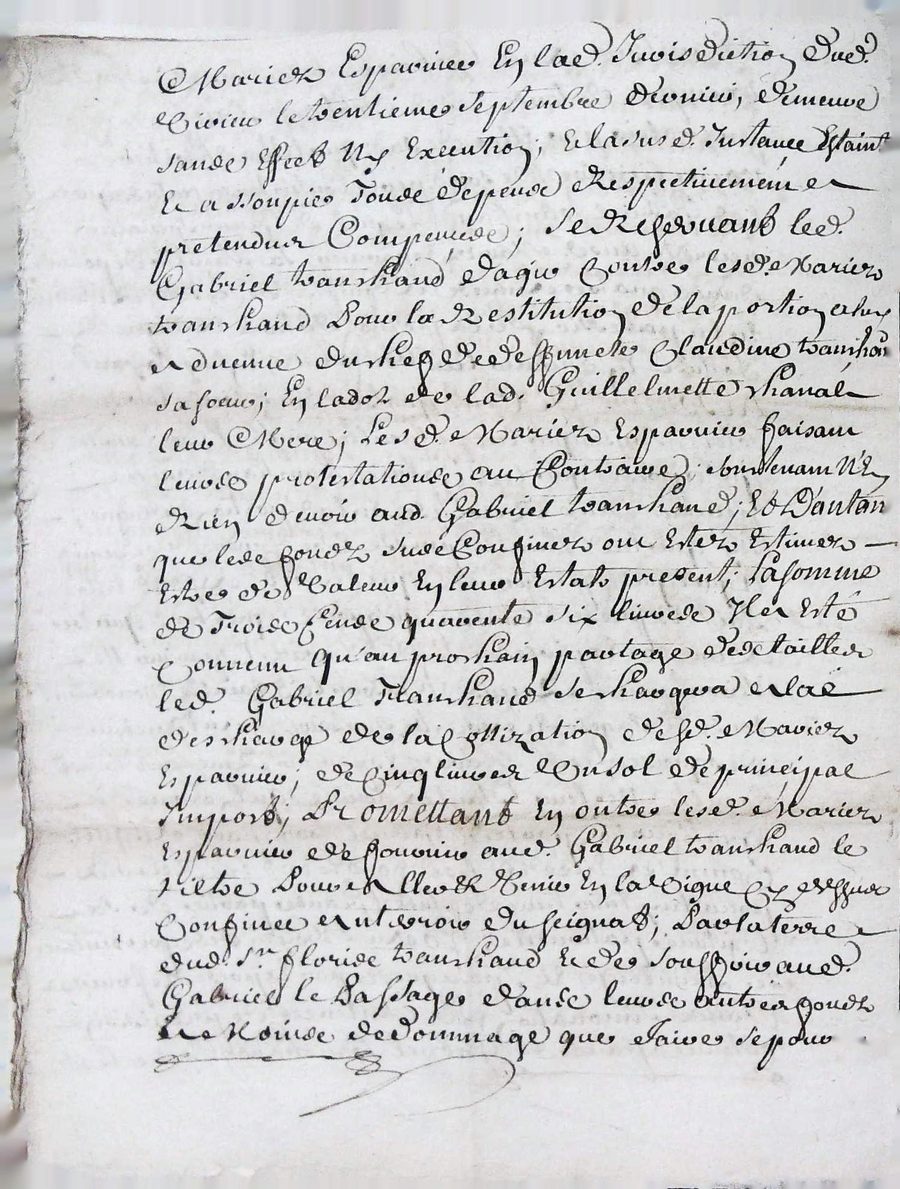 Mariez Espaoniee En lad. Jurisdiction dud.
Viviers le trentieme septembre dernier, demeure
sande Effect Ny Execution; Et lasusd. Instance Estaint
Et assoupie Toude depende Respectivement
pretendus Compencede; Se Reservant led.
Gabriel tranchand d'agir Contre lesd. Mariez
tranchand Pour la Restitution de la portion a luy
advenue du chef de deffuncte Claudine tranchan
sa soeur; En la dot de lad. Guillelmette chanal
leur Mere; Lesd. Mariez Espaonier faisant
leurde protestationde au Contraire; soustenant N'E
Rien devoir aud. Gabriel tranchand; Et D'autan
que lede fondz susde Confinez ont Estez Estimez
Estre de Valeur En leur Estat present; La somme
de Troide Cende quarente six livrede Il a Esté
Convenu qu'au prochain partage dede tailles
led. Gabriel Tranchand se chargera
deschargé de la Cottization desd. Mariez
Espaonier; de Cinq livres Un sol de principal
Import; Promettant En outre lesd. Mariez
Espaonier de fournir aud. Gabriel tranchand le
tiltre Pour aller & Venir En la Vigne Cy dessus
Confinee et terroir du seignat; Par la terre
dud. Sr. floride tranchand Et de souffrir aud.
Gabriel le Passage dande leurde autres fondz
Le Moinde de Dommage que faire se pour